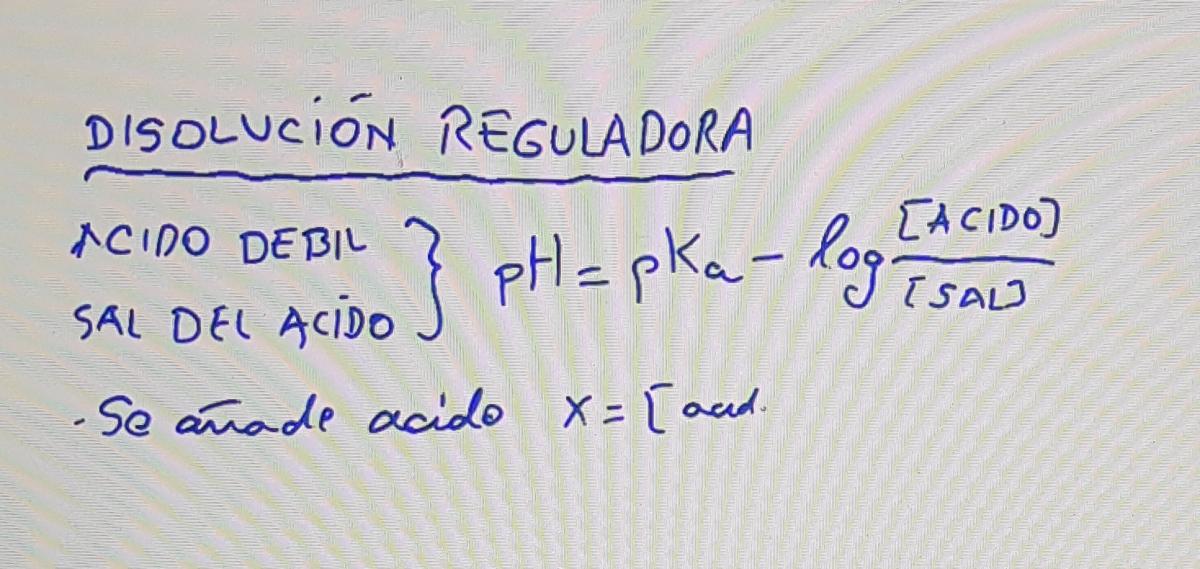 DISOLUCIÓN REGULADORA
ACIDO DEBIL
SAL DEL ACIDO
} pH = pKa - log [ACIDO] / [SAL]
· Se añade acido x = [acid.